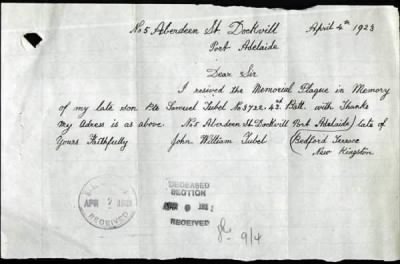 No 5 Aberdeen St. Dockvill April 4th 1923
Port Adelaide
Dear Sir
I resived the Memorial Plaque in Memory
of my late son Pte Samuel Tubel No 3722. 43rd Batt. with Thanks
my Adress is as above. No 5 Aberdeen St. Dockvill Port Adelaide) late of
Yours Faithfully John William Tubel (Bedford Terrace
New Kingston
APR 1923
RECEIVED
DECEASED
SECTION
RECEIVED
9/4